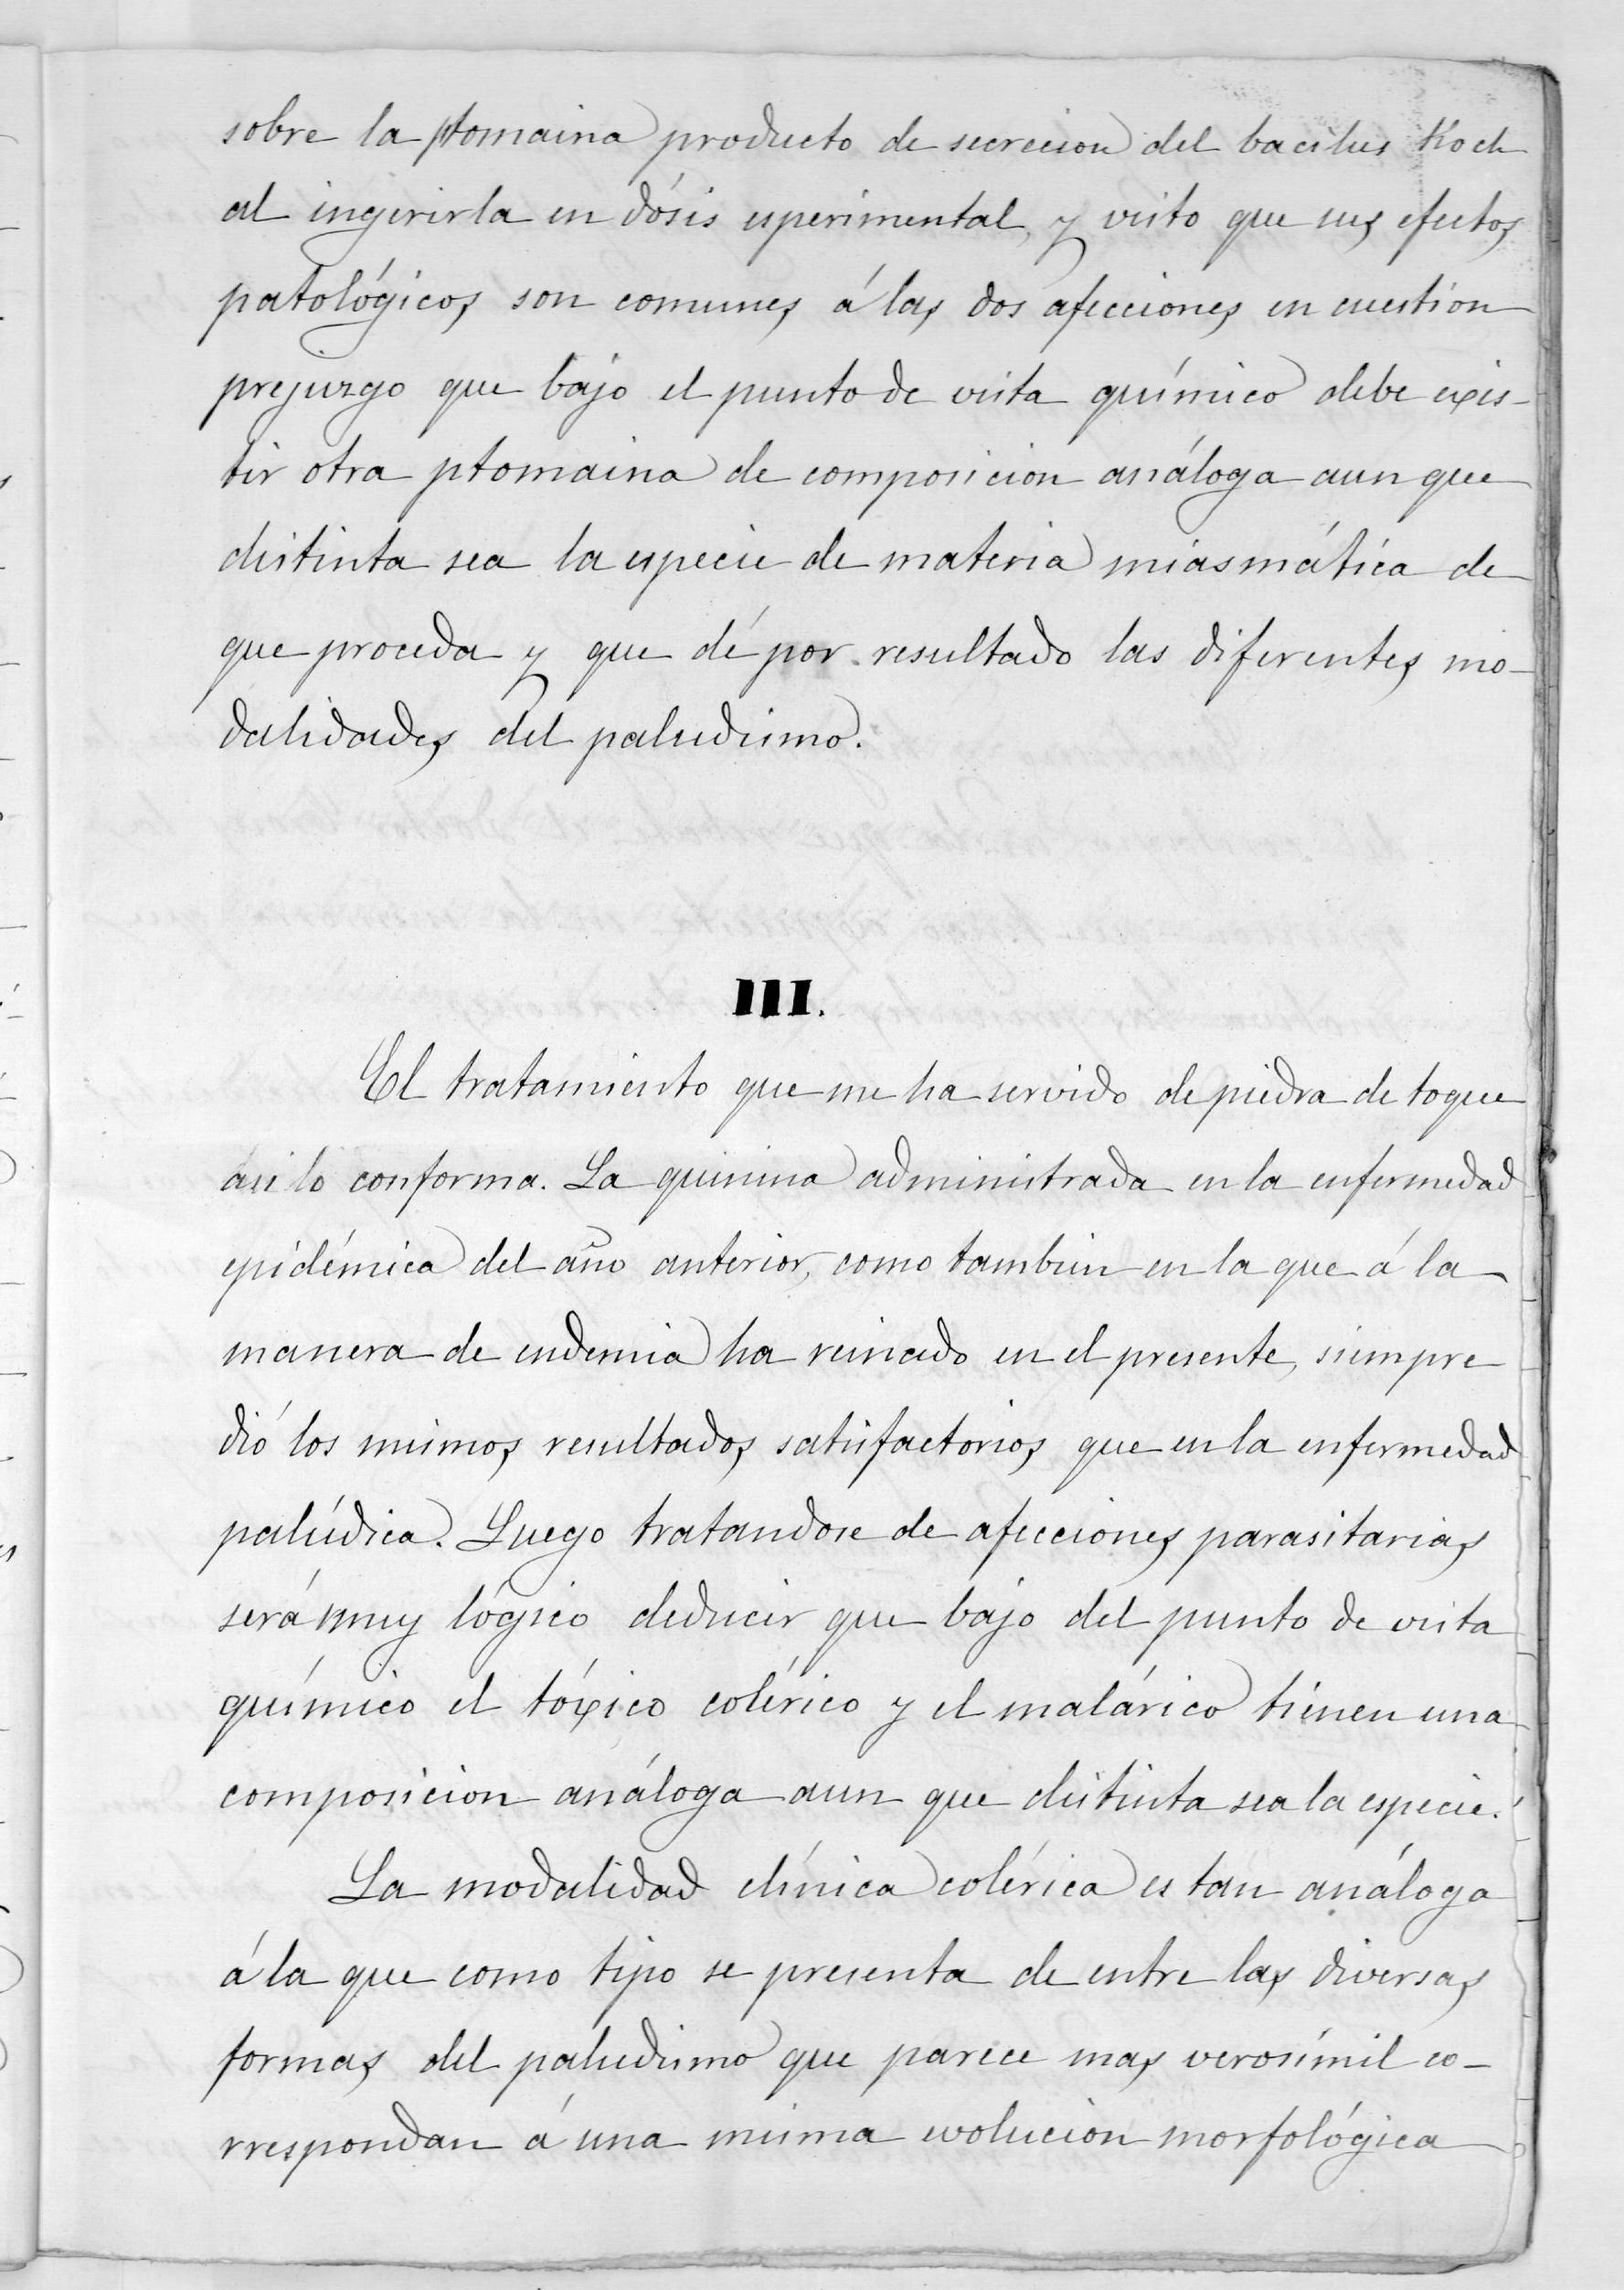 sobre la ptomaina producto de secrecion del bacilus Koch
al ingerirla en dósis esperimental, y visto que sus efectos
patológicos son comunes á las dos afecciones en cuestion
prejuzgo que bajo el punto de vista químico debe exis-
tir otra ptomaina de composicion análoga aun que
distinta sea la especie de materia miasmática de
que proceda y que dé por resultado las diferentes mo-
dalidades del paludismo.
III.
El tratamiento que me ha servido de piedra de toque
asi lo conforma. La quinina administrada en la enfermedad
epidémica del año anterior, como tambien en la que á la
manera de endemia ha reinado en el presente, siempre
dió los mismos resultados satisfactorios que en la enfermedad
palúdica. Luego tratandose de afecciones parasitarias
será muy lógico deducir que bajo del punto de vista
químico el tóxico colérico y el malárico tienen una
composicion análoga aun que distinta sea la especie.
La modalidad clínica colérica es tan análoga
á la que como tipo se presenta de entre las diversas
formas del paludismo que parece mas verosímil co-
rrespondan á una misma evolucion morfológica